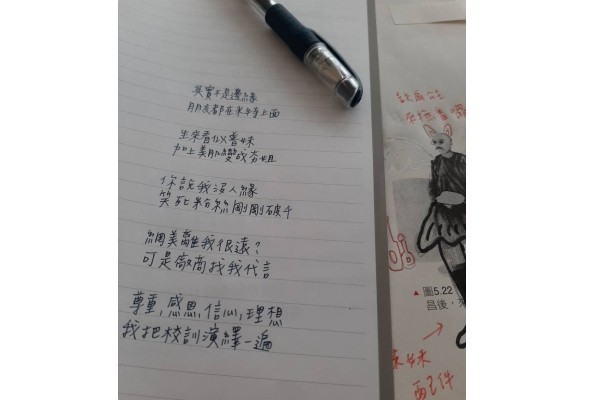 其實不是邊緣
朋友都在米字上面
生來看似普妹
加上美肌變成夯姐
你說我沒人緣
笑死粉絲剛剛破千
網美離我很遠?
可是廠商找我代言
尊重,感恩,信心,理想
我把校訓演繹一遍
▲ 圖5.22
昌後,
配件